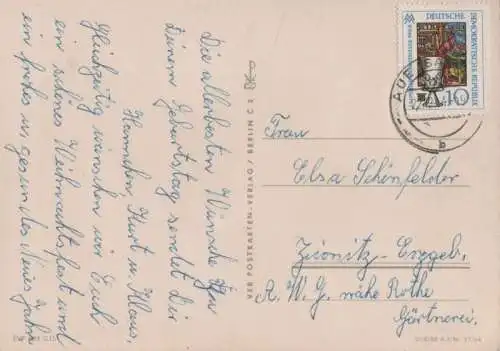 Die allerbesten Wünsche zu
Deinem Geburtstag sendet dir
Hannchen, Kurt u. Klaus,
Gleichzeitig wünschen wir Euch
ein schönes Weihnachtsfest und
ein frohes u. gesundes Neues Jahr
VEB POSTKARTEN-VERLAG / BERLIN C 2
DEUTSCHE
DEMOKRATISCHE REPUBLIK
10
AUE
b
Frau
Elsa Schönfelder
Zwönitz-Erzgeb.
A. W. G. nähe Rothe
Gärtnerei.